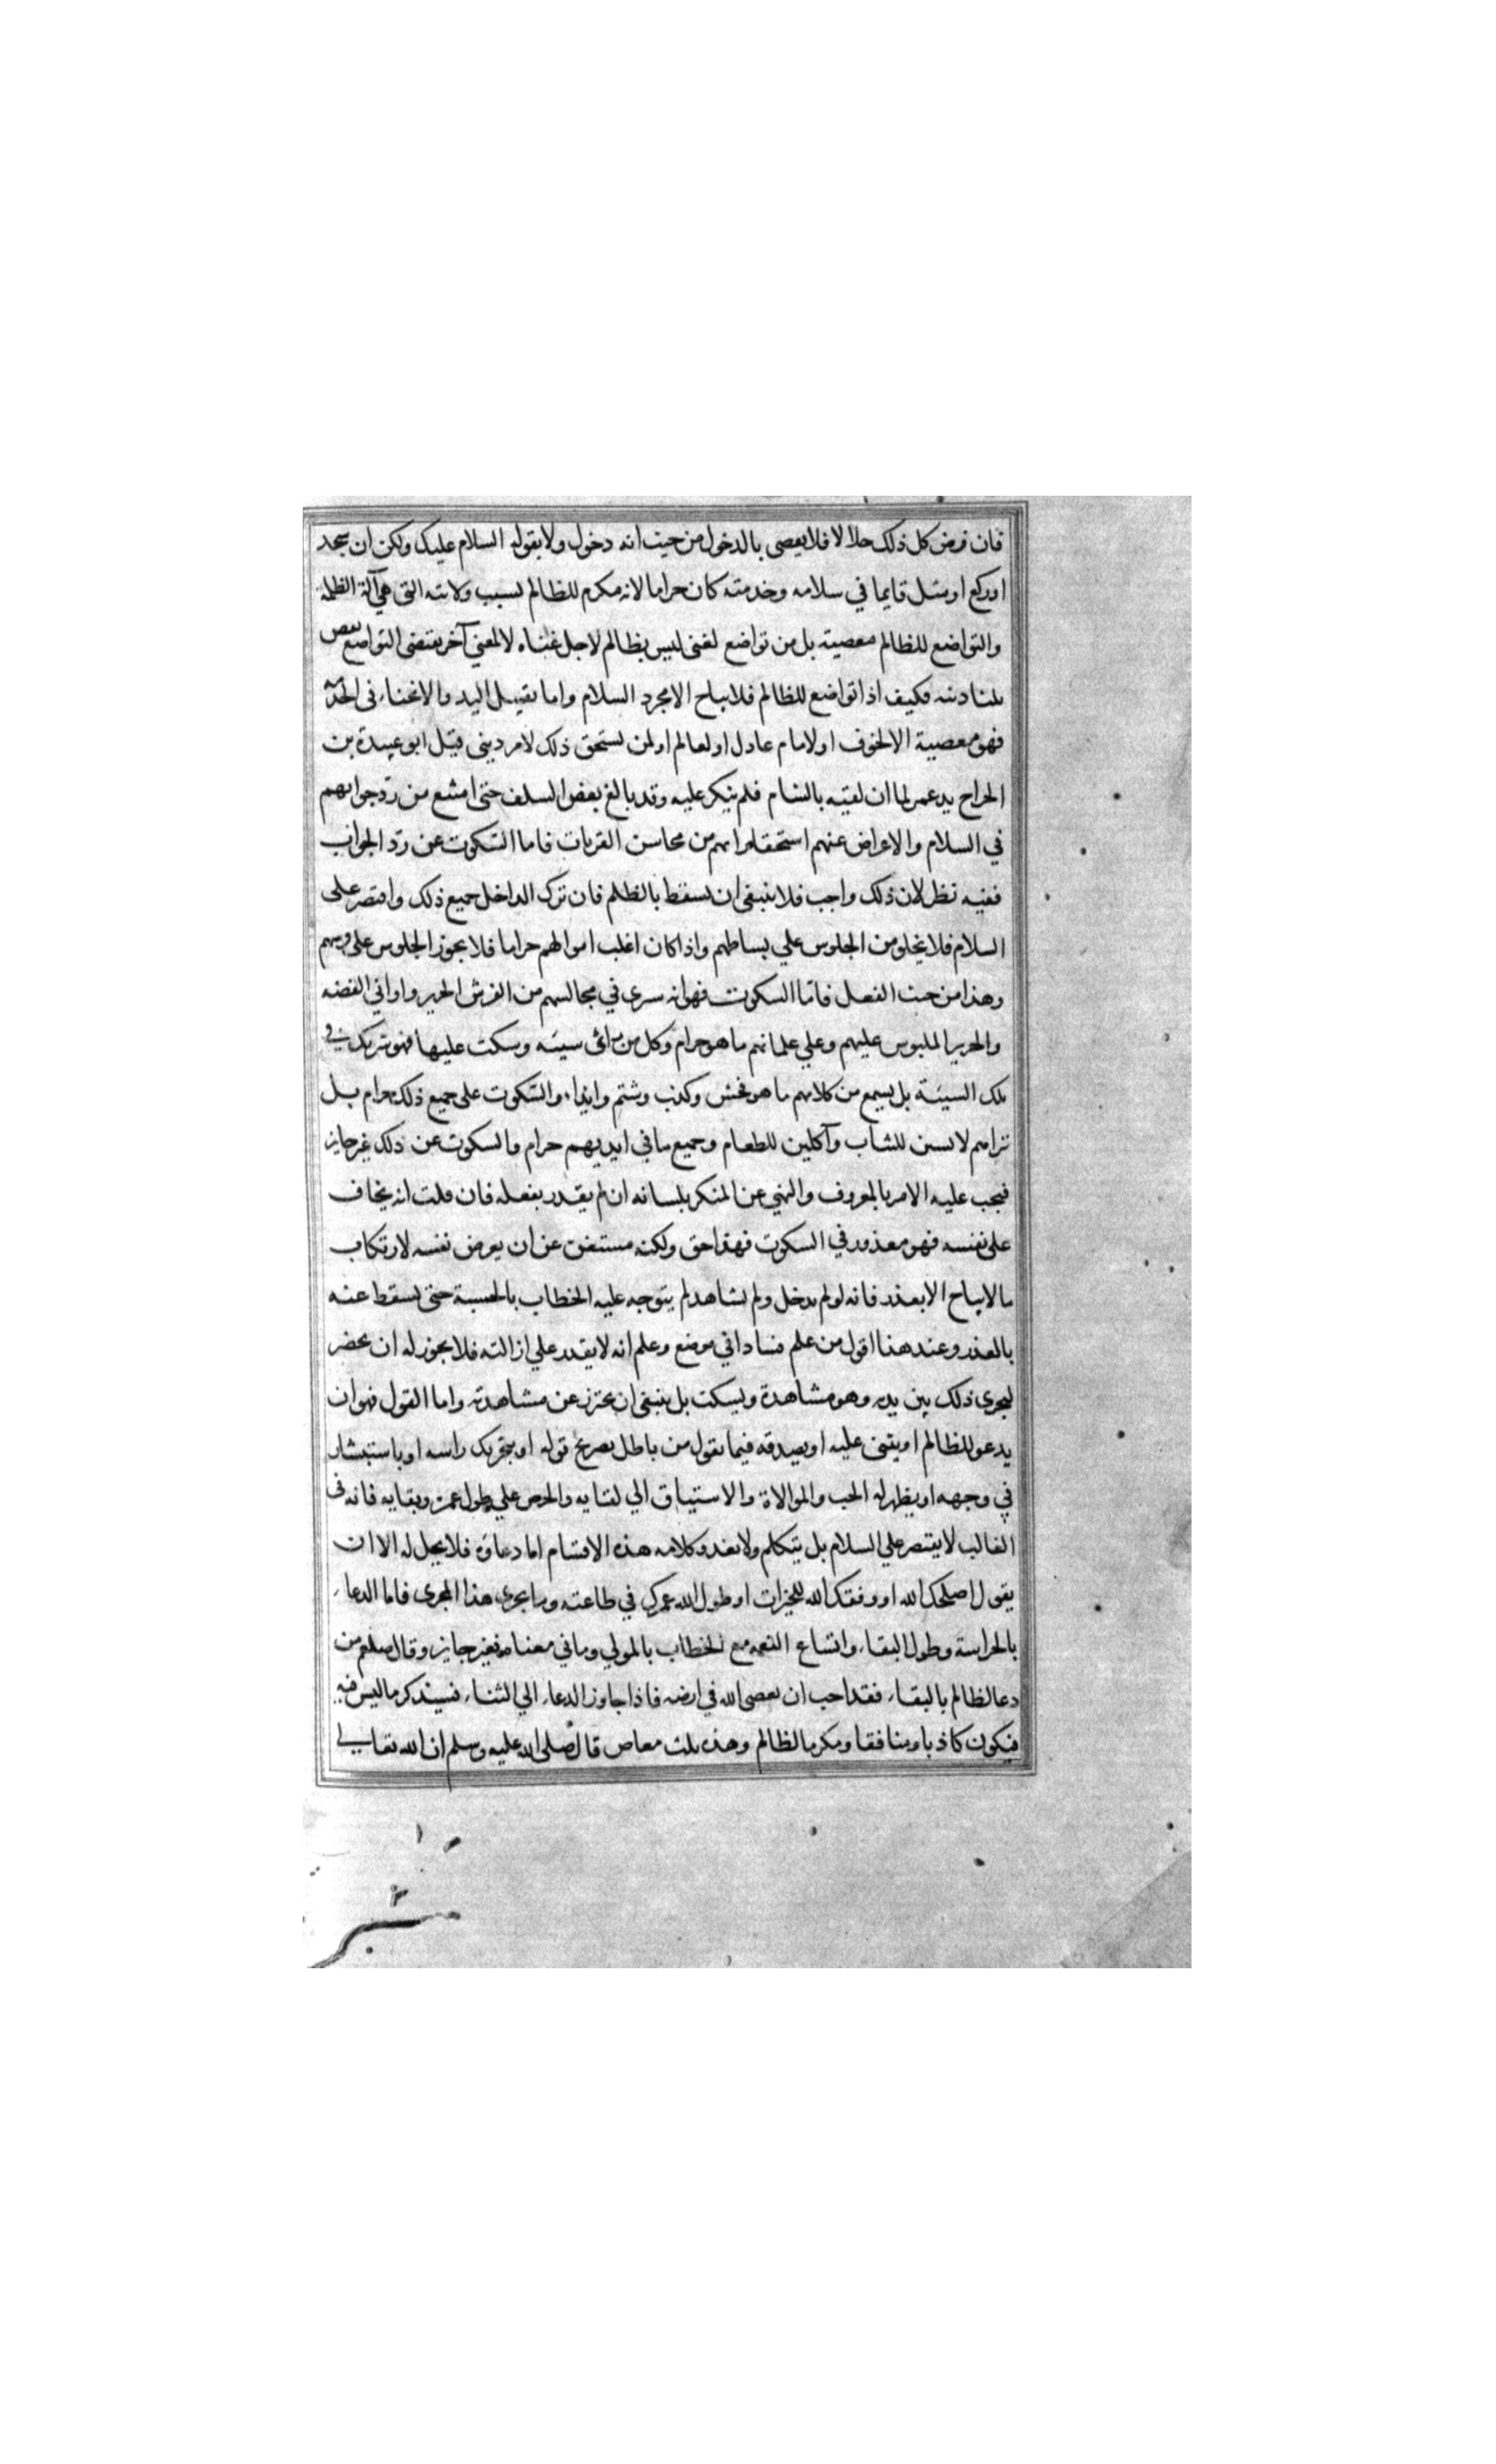 فان فرض كل ذلك حلالا فلا يعصى بالدخول من حيث انه دخول ولا بقوله السلام عليك ولكن ان سجد
او ركع او مثل قايما في سلامه وخدمته كان حراما لانه مكرم للظالم لسبب ولايته التى هي آلة الظلمه
والتواضع للظالم معصية بل من تواضع لغنى ليس بظالم لاجل غناه لا لمعنى آخر يقتضى التواضع نقص
ثلثا دينه فكيف اذا تواضع للظالم فلا يباح الا مجرد السلام واما تقبيل اليد والانحناء فى الخدمة
فهو معصية الا لخوف او لامام عادل او لعالم او لمن يستحق ذلك لامر دينى قبل ابو عبيدة بن
الجراح يد عمر لما ان لقيه بالشام فلم ينكر عليه وقد بالغ بعض السلف حتى امتنع من رد جوابهم
في السلام والاعراض عنهم استحقارا بهم من محاسن القربات فاما السكوت عن رد الجواب
ففيه نظر لان ذلك واجب فلا ينبغى ان يسقط بالظلم فان ترك الداخل جميع ذلك واقتصر على
السلام فلا يخلو من الجلوس علي بساطهم واذا كان اغلب اموالهم حراما فلا يجوز الجلوس على فرشهم
وهذا من حيث الفعل فاما السكوت فهو انه سيرى في مجالسهم من الفرش الحرير واواني الفضه
والحرير الملبوس عليهم وعلي غلمانهم ما هو حرام وكل من رأى سيئه وسكت عليها فهو شريك في
تلك السيئة بل يسمع من كلامهم ما هو فحش وكذب وشتم وايذاء والسكوت على جميع ذلك حرام بل
تراهم لابسين للثياب وآكلين للطعام وجميع ما في ايديهم حرام والسكوت عن ذلك غير جايز
فيجب عليه الامر بالمعروف والنهي عن المنكر بلسانه ان لم يقدر بفعله فان قلت انه يخاف
على نفسه فهو معذور في السكوت فهذا حق ولكنه مستغن عن ان يعرض نفسه لارتكاب
ما لا يباح الا بعذر فانه لو لم يدخل ولم يشاهد لم يتوجه عليه الخطاب بالحسبة حتى يسقط عنه
بالعذر وعند هذا اقول من علم فسادا في موضع وعلم انه لا يقدر علي ازالته فلا يجوز له ان يحضر
ليجرى ذلك بين يديه وهو مشاهدة ويسكت بل ينبغى ان يحترز عن مشاهدته واما القول فهو ان
يدعو للظالم او يثنى عليه او يصدقه فيما يقول من باطل بصريح قوله او بتحريك راسه او باستبشار
في وجهه او يظهر له الحب والموالاة والاشتياق الي لقايه والحرص علي طول عمره وبقايه فانه فى
الغالب لا يقتصر علي السلام بل يتكلم ولا يعدو كلامه هذه الاقسام اما دعاؤه فلا يحل له الا ان
يقول اصلحك الله او وفقك الله للخيرات او طول الله عمرك في طاعته وما يجرى هذا المجرى فاما الدعاء
بالحراسة وطول البقاء واتساع النعمه مع الخطاب بالمولي وما في معناه فغير جايز وقال صلعم من
دعا لظالم بالبقاء فقد احب ان يعصى الله في ارضه فاذا جاوز الدعاء الي الثناء فسيذكر ما ليس فيه
فيكون كاذبا ومنافقا ومكرما لظالم وهذه ثلث معاص قال صلى الله عليه وسلم ان الله تعالي